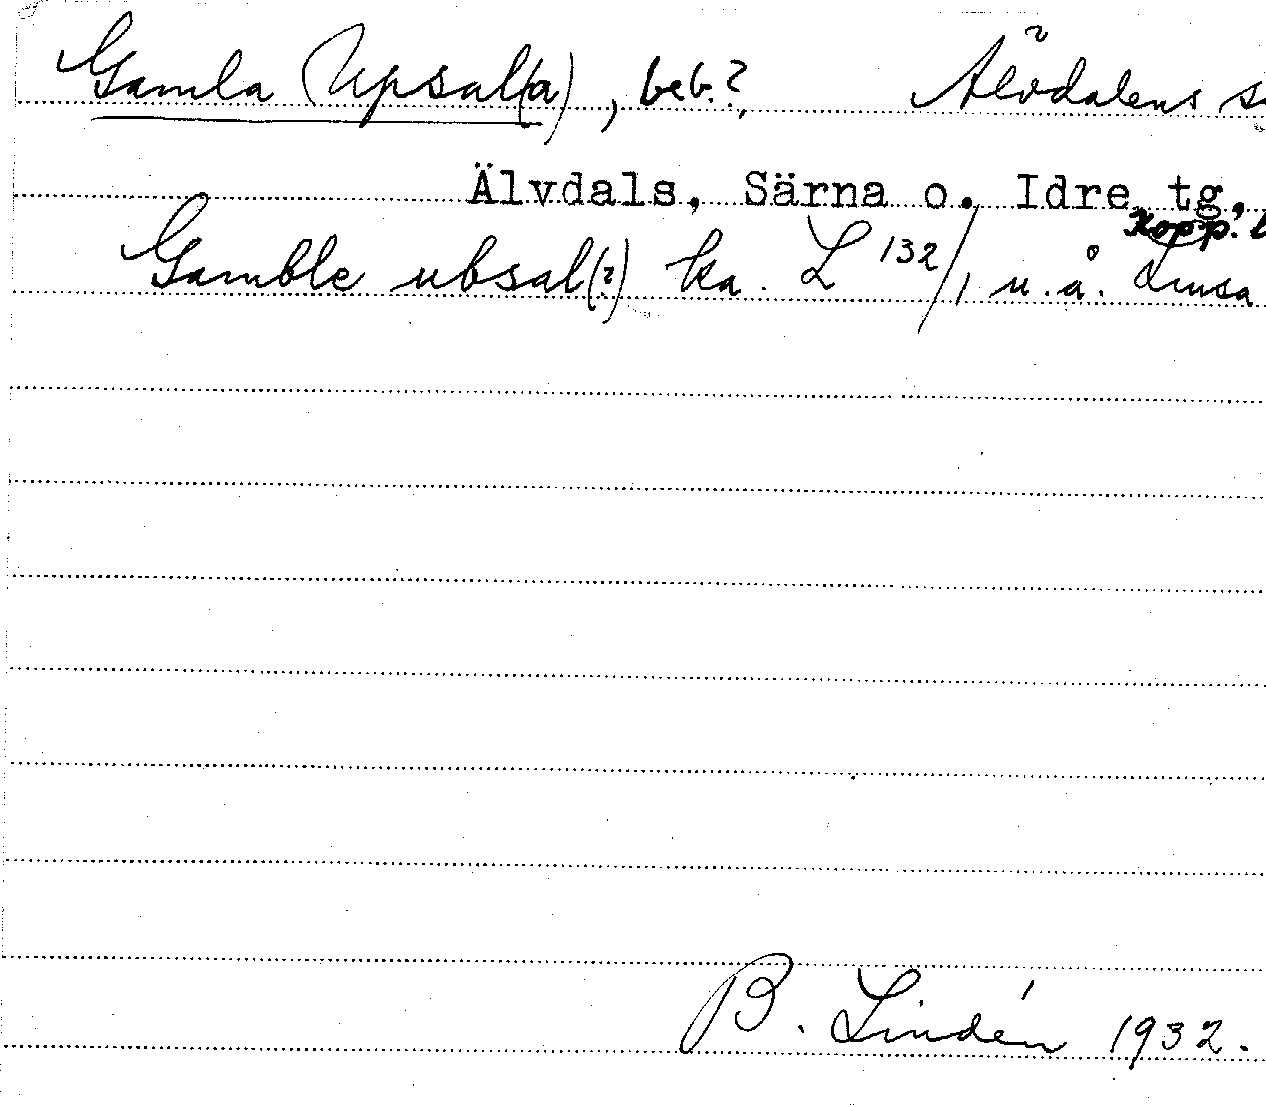 Gamla (Upsal(a), beb.?, Älvdalens s
Älvdals, Särna o. Idre tg,
Kopp. l
Gamble ubsal(?) ka. L 132/1, u.å. Lmsa
B. Lindén 1932.